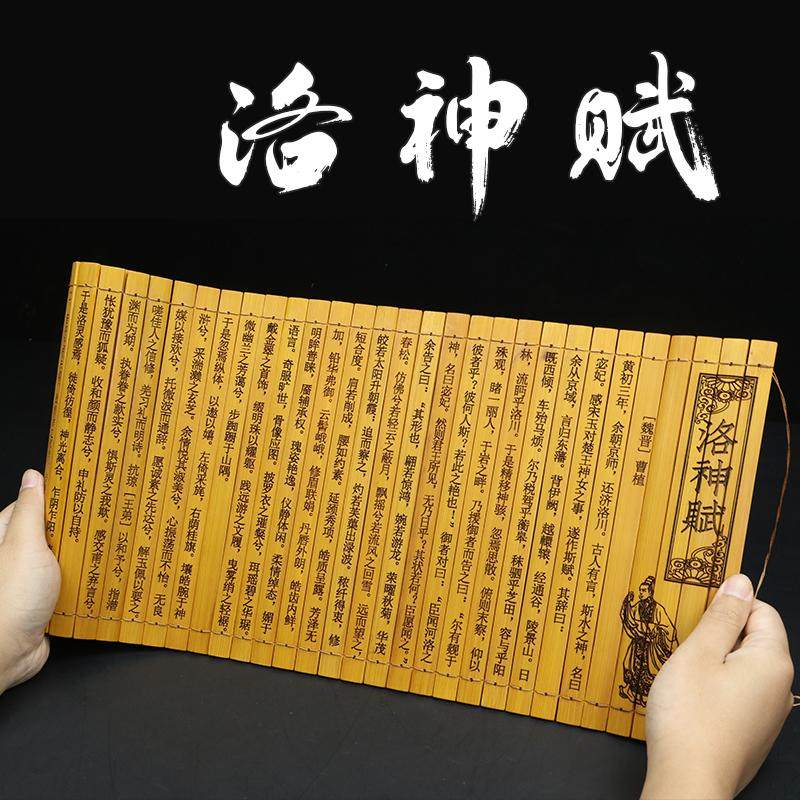 洛神赋
洛神賦
[魏晋] 曹植
黄初三年，余朝京师，还济洛川。古人有言，斯水之神，名曰
宓妃。感宋玉对楚王神女之事，遂作斯赋。其辞曰：
余从京域，言归东藩。背伊阙，越轘辕，经通谷，陵景山。日
既西倾，车殆马烦。尔乃税驾乎蘅皋，秣驷乎芝田，容与乎阳
林，流眄乎洛川。于是精移神骇，忽焉思散。俯则未察，仰以
殊观，睹一丽人，于岩之畔。乃援御者而告之曰：“尔有觌于
彼者乎？彼何人斯？若此之艳也！”御者对曰：“臣闻河洛之
神，名曰宓妃。然则君王所见，无乃日乎？其状若何？臣愿闻之。”
余告之曰：“其形也，翩若惊鸿，婉若游龙。荣曜秋菊，华茂
春松。仿佛兮若轻云之蔽月，飘摇兮若流风之回雪。远而望之，
皎若太阳升朝霞；迫而察之，灼若芙蕖出渌波。秾纤得衷，修
短合度。肩若削成，腰如约素。延颈秀项，皓质呈露。芳泽无
加，铅华弗御。云髻峨峨，修眉联娟。丹唇外朗，皓齿内鲜，
明眸善睐，靥辅承权。瑰姿艳逸，仪静体闲。柔情绰态，媚于
语言。奇服旷世，骨像应图。披罗衣之璀粲兮，珥瑶碧之华琚。
戴金翠之首饰，缀明珠以耀躯。践远游之文履，曳雾绡之轻裾。
微幽兰之芳蔼兮，步踟蹰于山隅。
于是忽焉纵体，以遨以嬉。左倚采旄，右荫桂旗。攘皓腕于神
浒兮，采湍濑之玄芝。余情悦其淑美兮，心振荡而不怡。无良
媒以接欢兮，托微波而通辞。愿诚素之先达兮，解玉佩以要之。
嗟佳人之信修，羌习礼而明诗。抗琼[王弟]以和予兮，指潜
渊而为期。执眷眷之款实兮，惧斯灵之我欺。感交甫之弃言兮，
怅犹豫而狐疑。收和颜而静志兮，申礼防以自持。
于是洛灵感焉，徙倚彷徨，神光离合，乍阴乍阳。